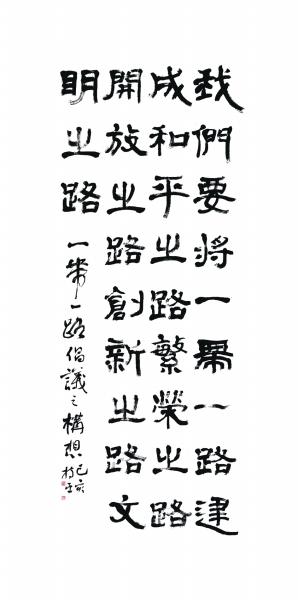 我們要將一帶一路建
成和平之路繁榮之路
開放之路創新之路文
明之路
一帶一路倡議之構想 己亥